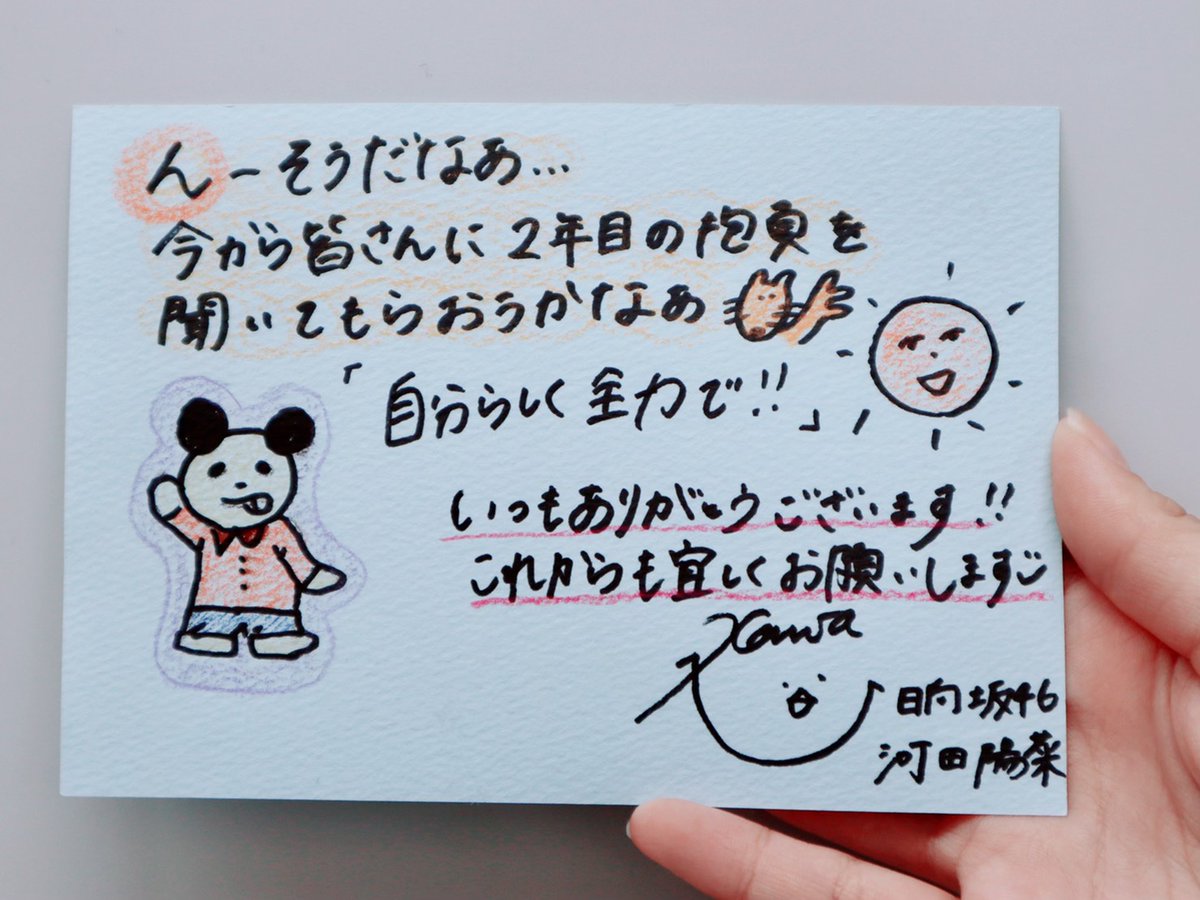 んーそうだなあ...
今から皆さんに2年目の抱負を
聞いてもらおうかなあ
「自分らしく全力で!!」
いつもありがとうございます!!
これからも宜しくお願いします
Kawa
日向坂46
河田陽菜